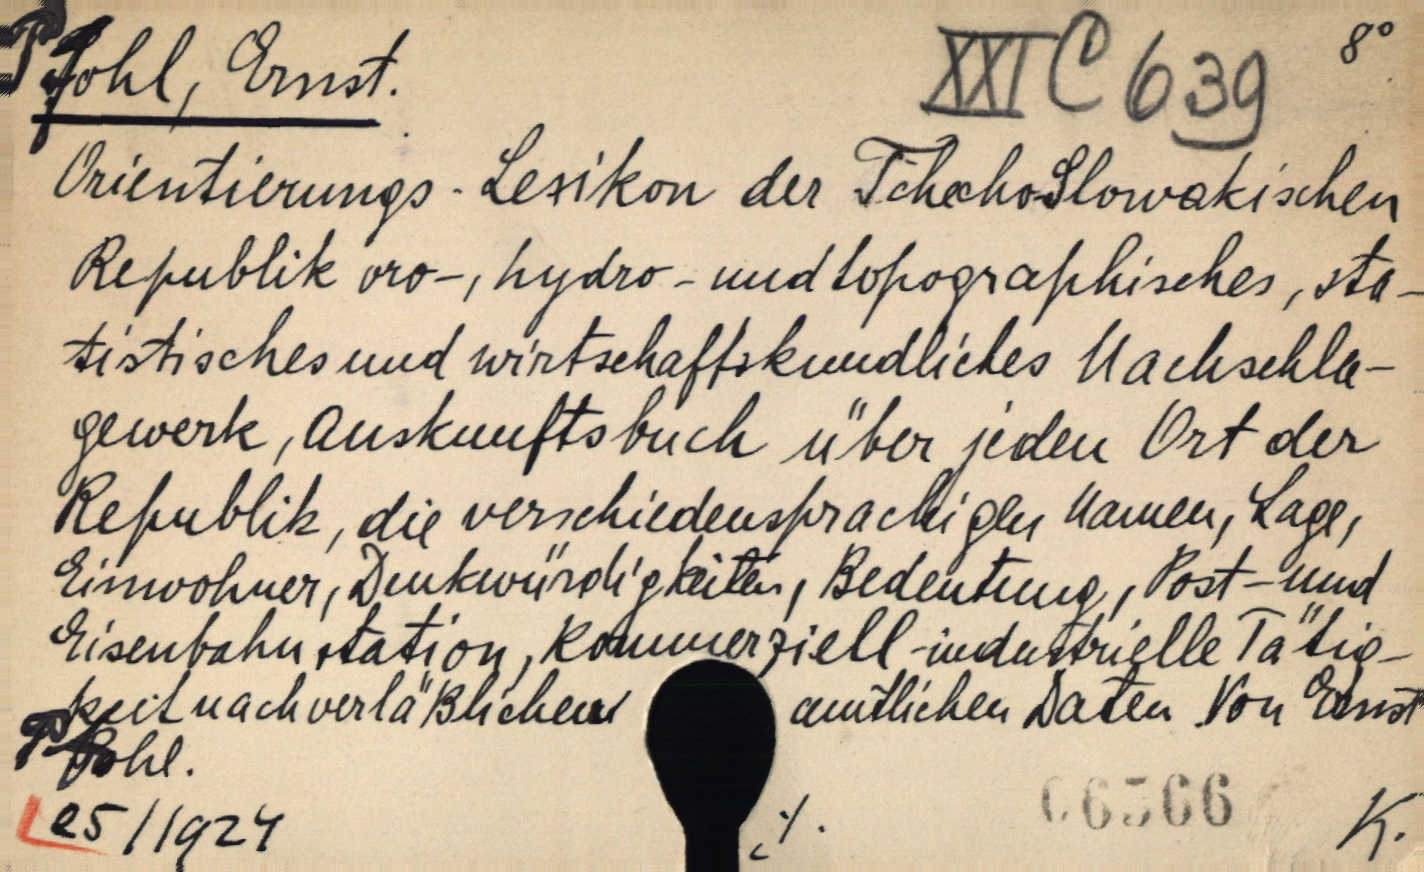 Pfohl, Ernst. XXI C 639 8°
Orientierungs-Lexikon der Tschecho-Slowakischen
Republik oro-, hydro- und topographisches, sta-
tistisches und wirtschaftskundliches Nachschla-
gewerk, Auskunftsbuch über jeden Ort der
Republik, die verschiedensprachigen Namen, Lage,
Einwohner, Denkwürdigkeiten, Bedeutung, Post- und
Eisenbahnstation, kommerziell-industrielle Tätig-
keit nach verläßlichen amtlichen Daten Von Ernst
Pfohl.
25/1924 ./. K.